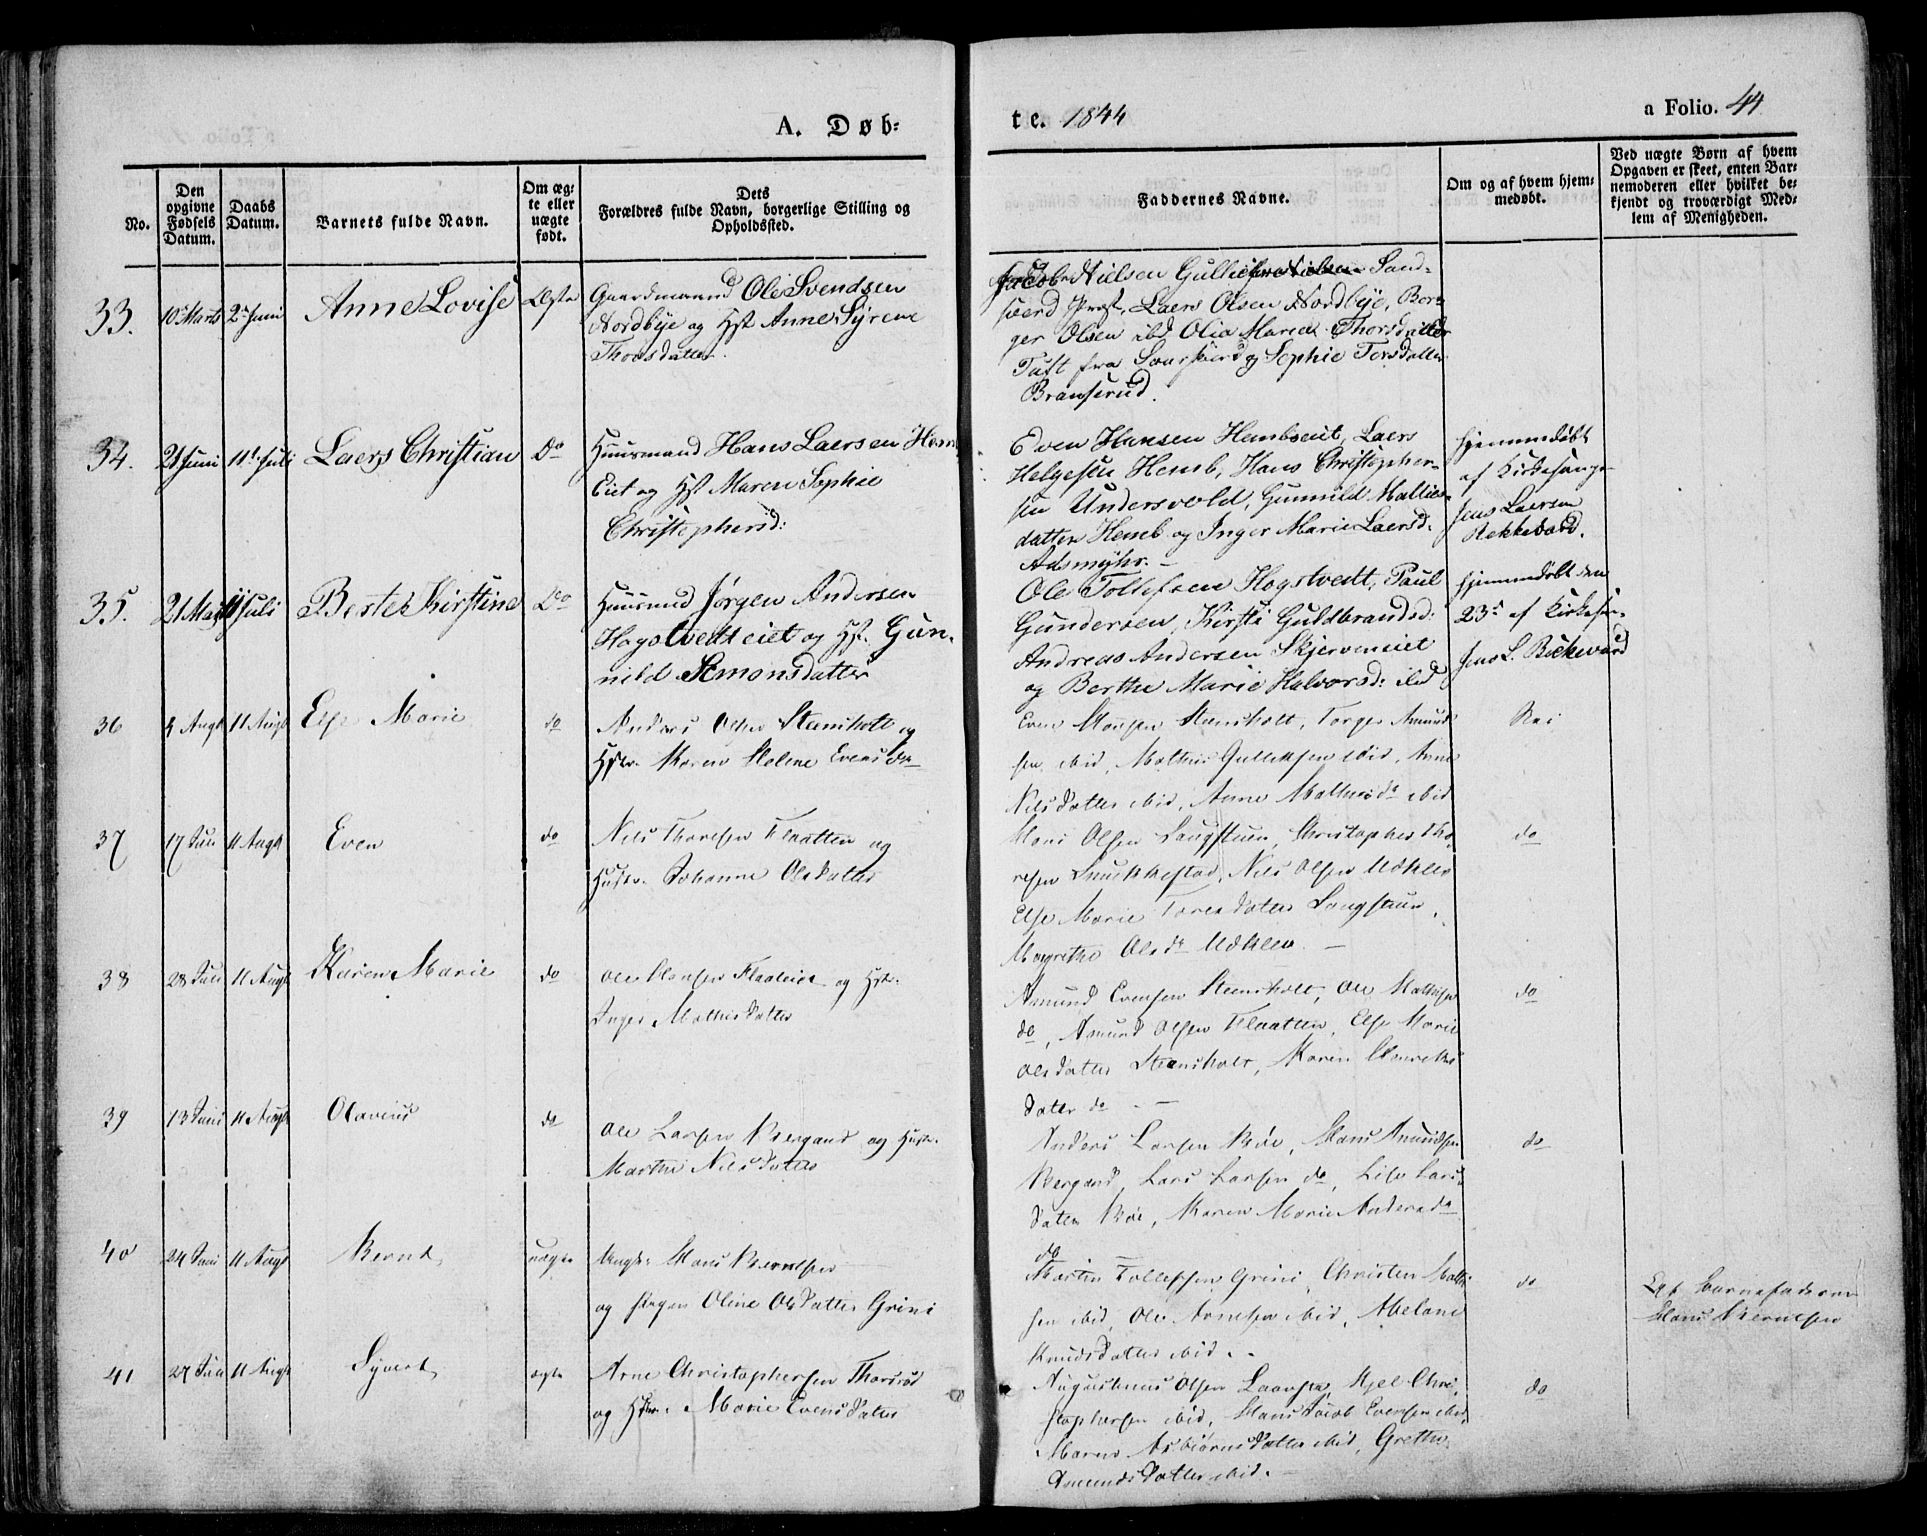 A. Døb-
te. 1844
a Folio. 44
No.
Den opgivne Fødsels Datum.
Daabs Datum.
Barnets fulde Navn.
Om æg-te eller uægte født.
Dets Forældres fulde Navn, borgerlige Stilling og Opholdssted.
Faddernes Navne.
Om og af hvem hjem-medøbt.
Ved uægte Børn af hvem Opgaven er skeet, enten Bar-nemoderen eller hvilket be-kjendt og troværdigt Med-lem af Menigheden.
33. 10 Marts 2 Juni Anne Lovise Ægte
Gaardmaand Ole Svendsen
Nordbye og Hst Anne Syrene
Thorsdatter
Jacob Nielsen Sand-
sværd Præst, Laers Olsen Nordbye, Bor-
ger Olsen ibd Olia Maria Thorsdatter
Tuft fra og Sophie Torsdatter
Bransrud.
34. 21 Juni 11t Juli Laers Christian Do
Huusmand Hans Laersen Hem
Eiet og Hst Maren Sophie
Christophersd:
Even Hansen Hembseiet, Laers
Helgesen Hemb, Hans Christopher-
sen Undersvold, Gunnild Mathies-
datter Hemb og Inger Marie Laersd.
Adsmyhr. -
Hjemmedøbt
af Kirkesanger
Jens Laersen
Bekkevard.
35. 21 Juli Berthe Kirstine Do
Huusmd Jørgen Andersen
Hogstvedteiet og Hst. Gun-
nild Simonsdatter
Ole Tollefsen Hogstvedt, Paul
Gundersen, Kirsti Guldbrandsd:
Andreas Andersen Skjerveneiet
og Berthe Marie Halvorsd: ibd
Hjemmedøbt den
23d af Kirkesan-
Jens L. Bekkevard
36 4 Augt 11 Augt Else Marie do
Anders Olsen Steensholt og
Hstr. Maren Helene Evensdr
Even Hansen Steensholt, Torger Amund-
sen ibid, Mathis Gulliksen ibid, Anne
Nilsdatter ibid, Anne Mathisdr ibid
Nei
37 17 Juli 11 Augt Even do
Nils Thoresen Flaatten og
Hustr. Johanne Olsdatter
Hans Olsen Langstuen, Christopher Tho-
resen Snekkestad, Nils Olsen Møhlen
Else Marie Toresdatter Langstuen,
Magrethe Olsdr Møhlen. -
do
38 28 Juli 11 Augt Karen Marie do
Ole Hansen og Hstr.
Inger Mathisdatter
Amund Evensen Steensholt, Ole Mathisen
do, Amund Olsen Flaatten, Else Marie
Olsdatter Steensholt, Maren
datter do - -
do
39 13 Juni 11 Augt Olavius do
Ole Larsen Bergand og Hustr.
Marthe Nilsdatter
Anders Larsen Bøe, Hans Amundsen
Bergand, Lars Larsen do, Lise Lars-
datter Bøe, Karen Marie Andersdr
do
do
40 24 Juni 11 Augt Bernt uægte
Ungk. Hans Berntsen
og Pigen Oline Olsdatter Grini
Martin Tollefsen Grini, Christen Mathi-
sen ibid, Ole Arnesen ibid, Abelone
Knudsdatter ibid. -
do
Barnefaderen
Hans Berntsen
41 27 Juli 11 Augt Syvert ægte
Arne Christophersen Thorsrud
og Hstr. Marie Evensdatter
Augustinus Olsen, Kjel Chri-
stophersen ibid, Hans Jacob Evensen ibid,
Maren Asbiørnsdatter ibid, Grethe
Amundsdatter ibid. -
do